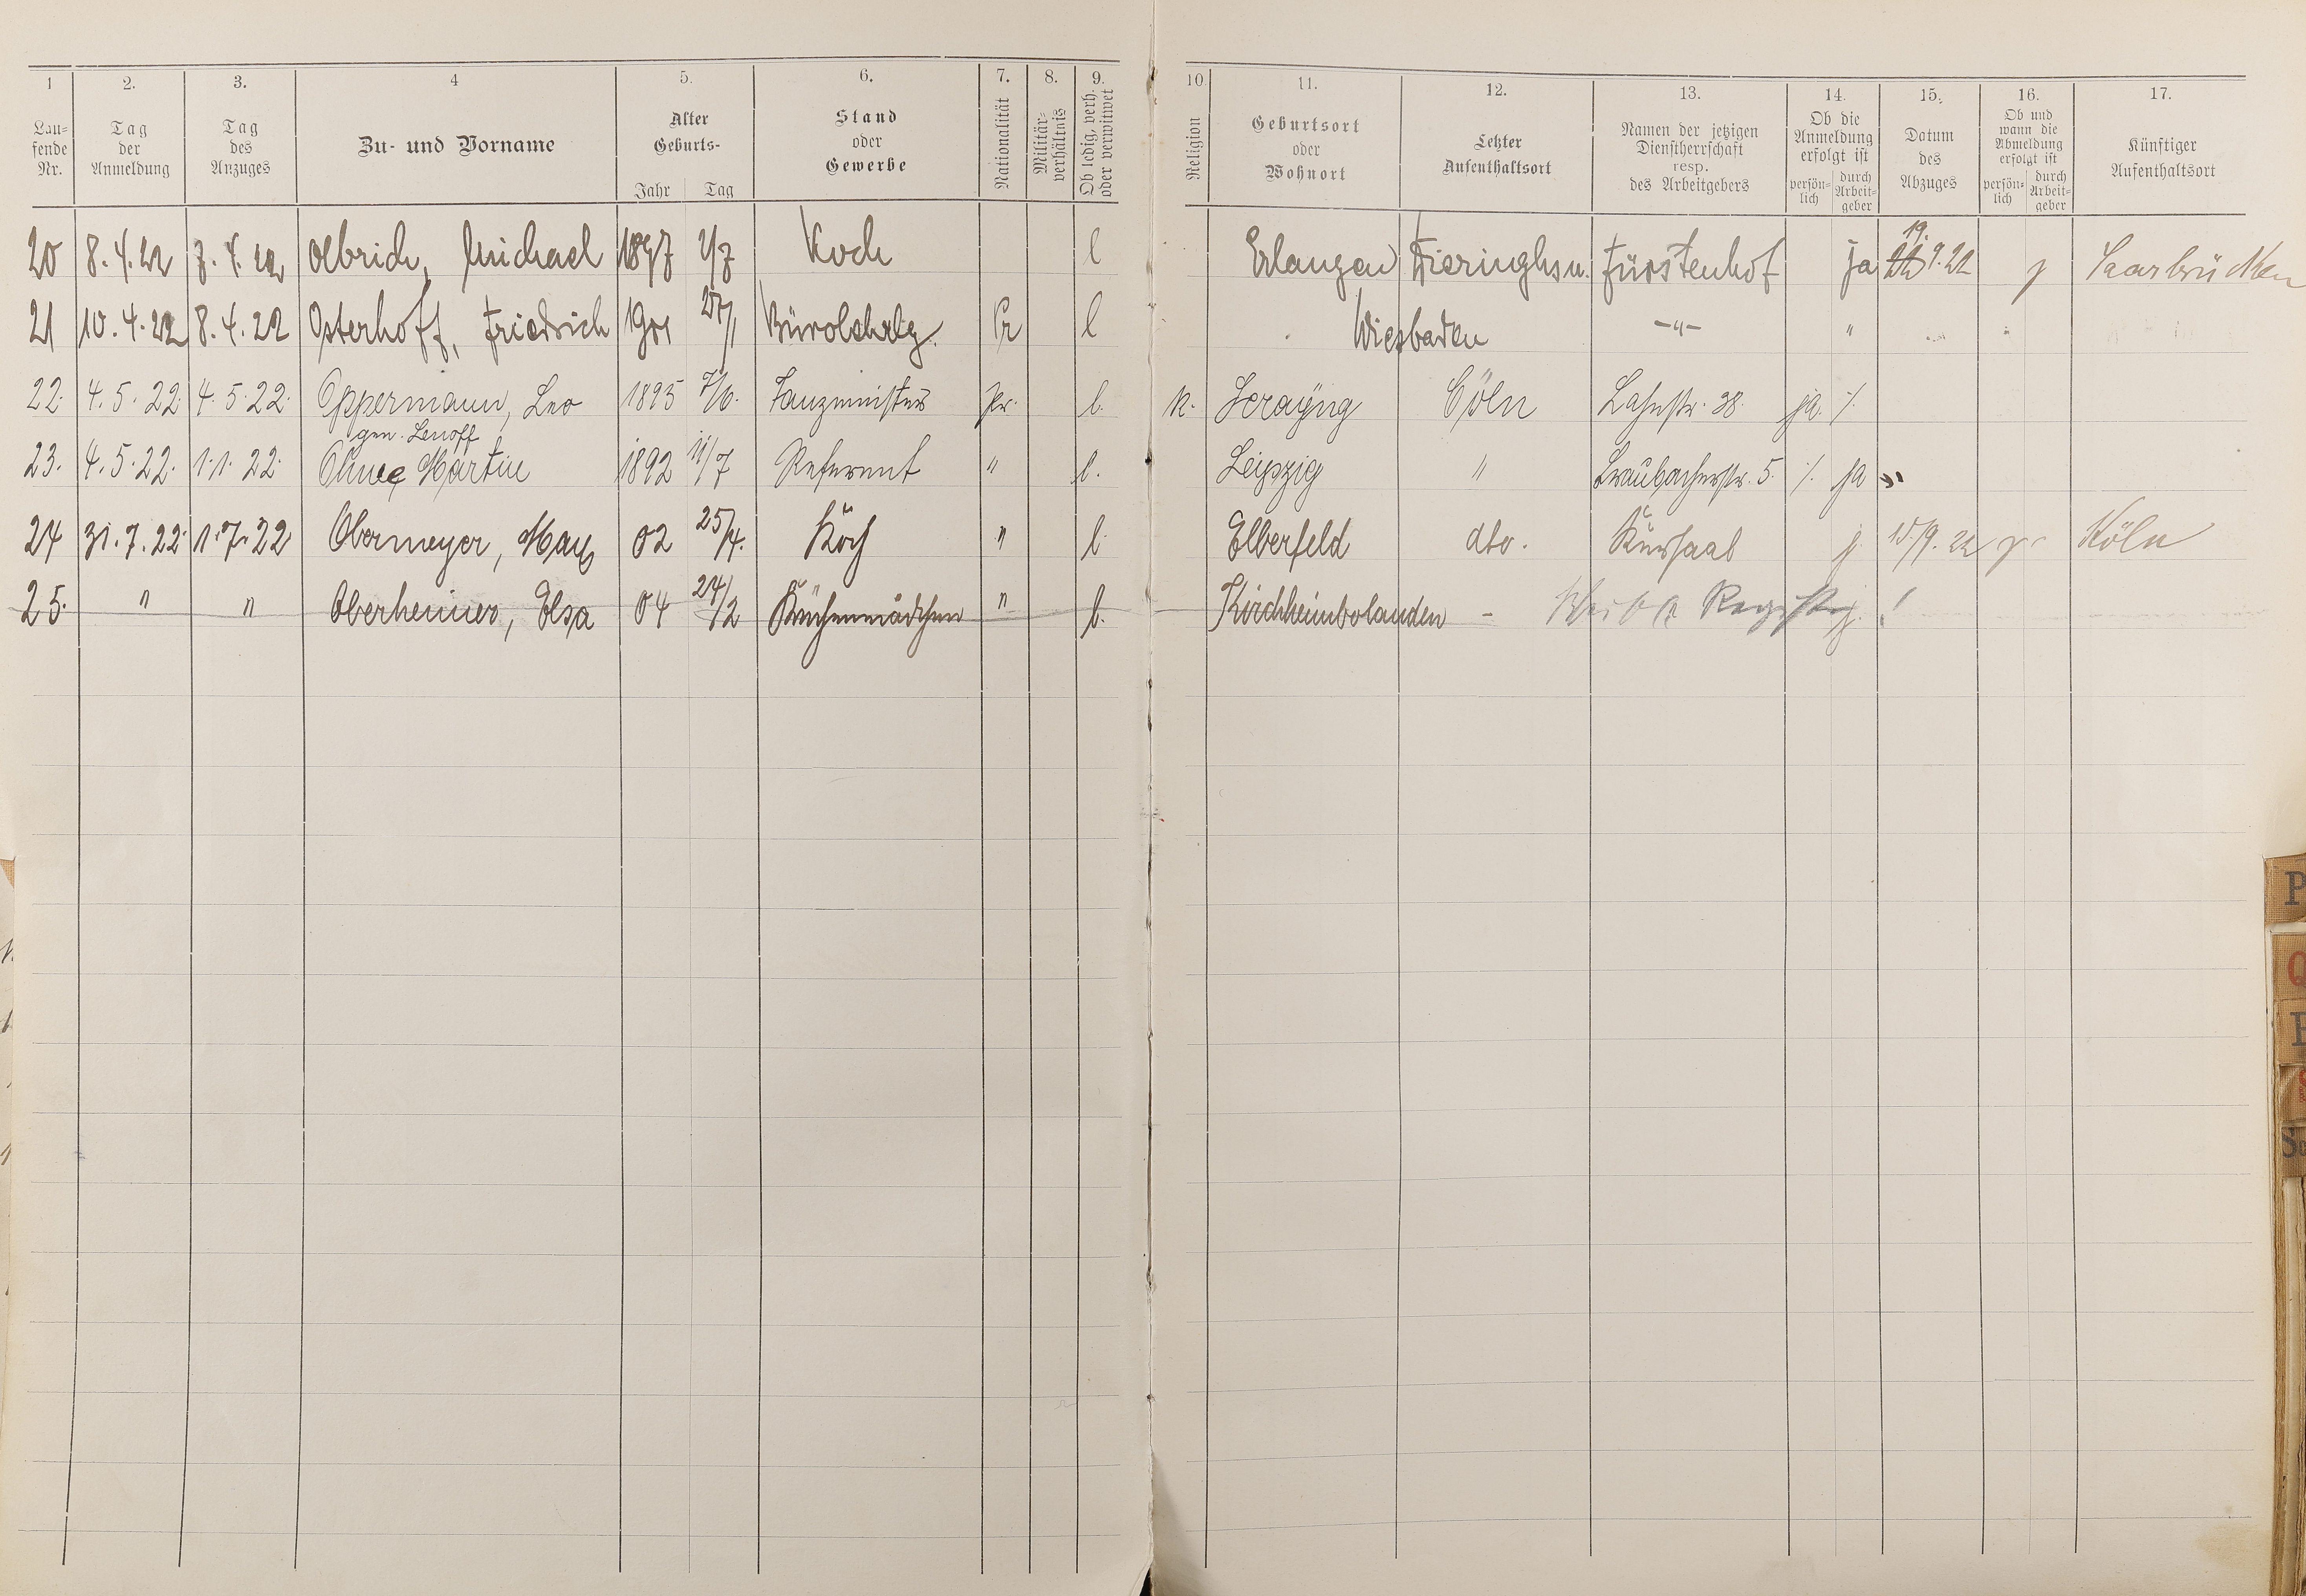 1 2. 3. 4 5. 6. 7. 8. 9. 10 11. 12. 13. 14. 15. 16. 17.
Lau- fende Nr.
Tag der Anmeldung
Tag des Anzuges
Zu- und Vorname
Alter Geburts- Jahr Tag
Stand oder Gewerbe
Nationalität
Militär- verhältnis
Ob ledig, verh. oder verwitwet
Religion
Geburtsort oder Wohnort
Letzter Aufenthaltsort
Namen der jetzigen Dienstherrschaft resp. des Arbeitgebers
Ob die Anmeldung erfolgt ist persön- lich durch Arbeit- geber
Datum des Abzuges
Ob und wann die Abmeldung erfolgt ist persön- lich durch Arbeit- geber
Künftiger Aufenthaltsort
20 8.4.22 7.4.22 Olbrich, Michael 1897 2/7 Koch l Erlangen Dieringhsn. Fürstenhof ja 19. 9.22 Saarbrücken
21 10.4.22 8.4.22 Osterhoff, Friedrich 1901 27/1 Bürolehrlg. Pr l Wiesbaden -"- "
22. 4.5.22. 4.5.22. Oppermann, Leo 1895 7/6. Tanzmeister Pr. l. K. Serayng Cöln Lahnstr. 38. ja. ./.
gen. Lenoff
23. 4.5.22. 1.1.22. Martin 1892 11/7 Referent " l. Leipzig " Braubacherstr. 5. ./. ja
24 31.7.22. 1.7.22 Obermeyer, Max 02 25/4. Koch " l. Elberfeld dto. Kursaal j. 15/9.22 Köln
25. " " Oberheimer, Elsa 04 24/2 Küchenmädchen " l. Kirchheimbolanden - Weibl. Register!
P
Q